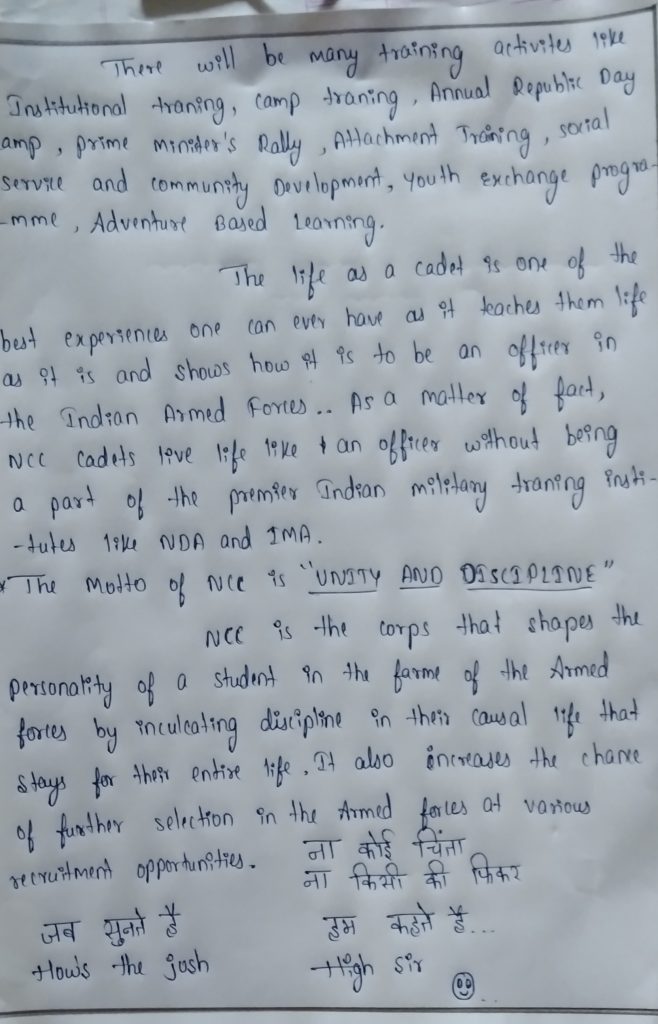 There will be many training activites like
Institutional traning, camp traning, Annual Republic Day
amp, prime minister's Rally, Attachment Training, social
service and community Development, youth Exchange progra-
-mme, Adventure Based Learning.
The life as a cadet is one of the
best experiences one can ever have as it teaches them life
as it is and shows how it is to be an officer in
the Indian Armed Forces.. As a matter of fact,
NCC cadets live life like an officer without being
a part of the premier Indian military traning insti-
-tutes like NDA and IMA.
* The Motto of NCC is "UNITY AND DISCIPLINE"
NCC is the corps that shapes the
personality of a student in the farme of the Armed
forces by inculcating discipline in their causal life that
stays for their entire life. It also increases the chance
of further selection in the Armed forces at various
recruitment opportunities.
ना कोई चिंता
ना किसी की फिकर
जब सुनते है हम कहते है...
How's the josh High sir